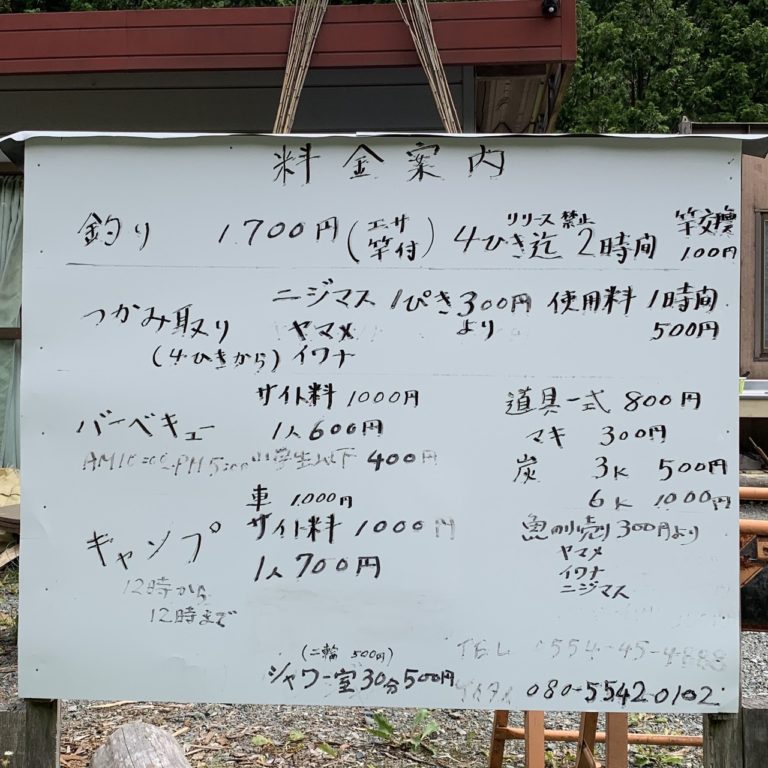 料金案内
釣り 1.700円 (エサ竿付) 4ひき迄 リリース禁止 2時間 竿交換 100円
つかみ取り ニジマス 1ぴき300円 使用料 1時間
ヤマメ より 500円
(4ひきから) イワナ
サイト料 1000円 道具一式 800円
バーベキュー 1人600円 マキ 300円
小学生以下 400円 炭 3K 500円
車 1.000円 6K 1000円
キャンプ サイト料 1000円 魚の小売り 300円より
1人700円 ヤマメ
イワナ
12時から ニジマス
12時まで
(二輪 500円) TEL 0554-45-4888
シャワー室30分500円 080-5542-0102